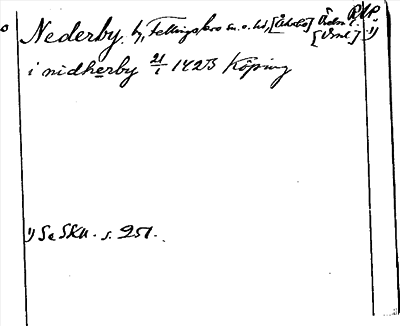 Nederby. by, Fellingsbro sn. o. hd, [Örebro] Ödm RAP.
[Vsml.] 1)
i nidherby 21/1 1423 Köping
1) Se SRU. s. 251.